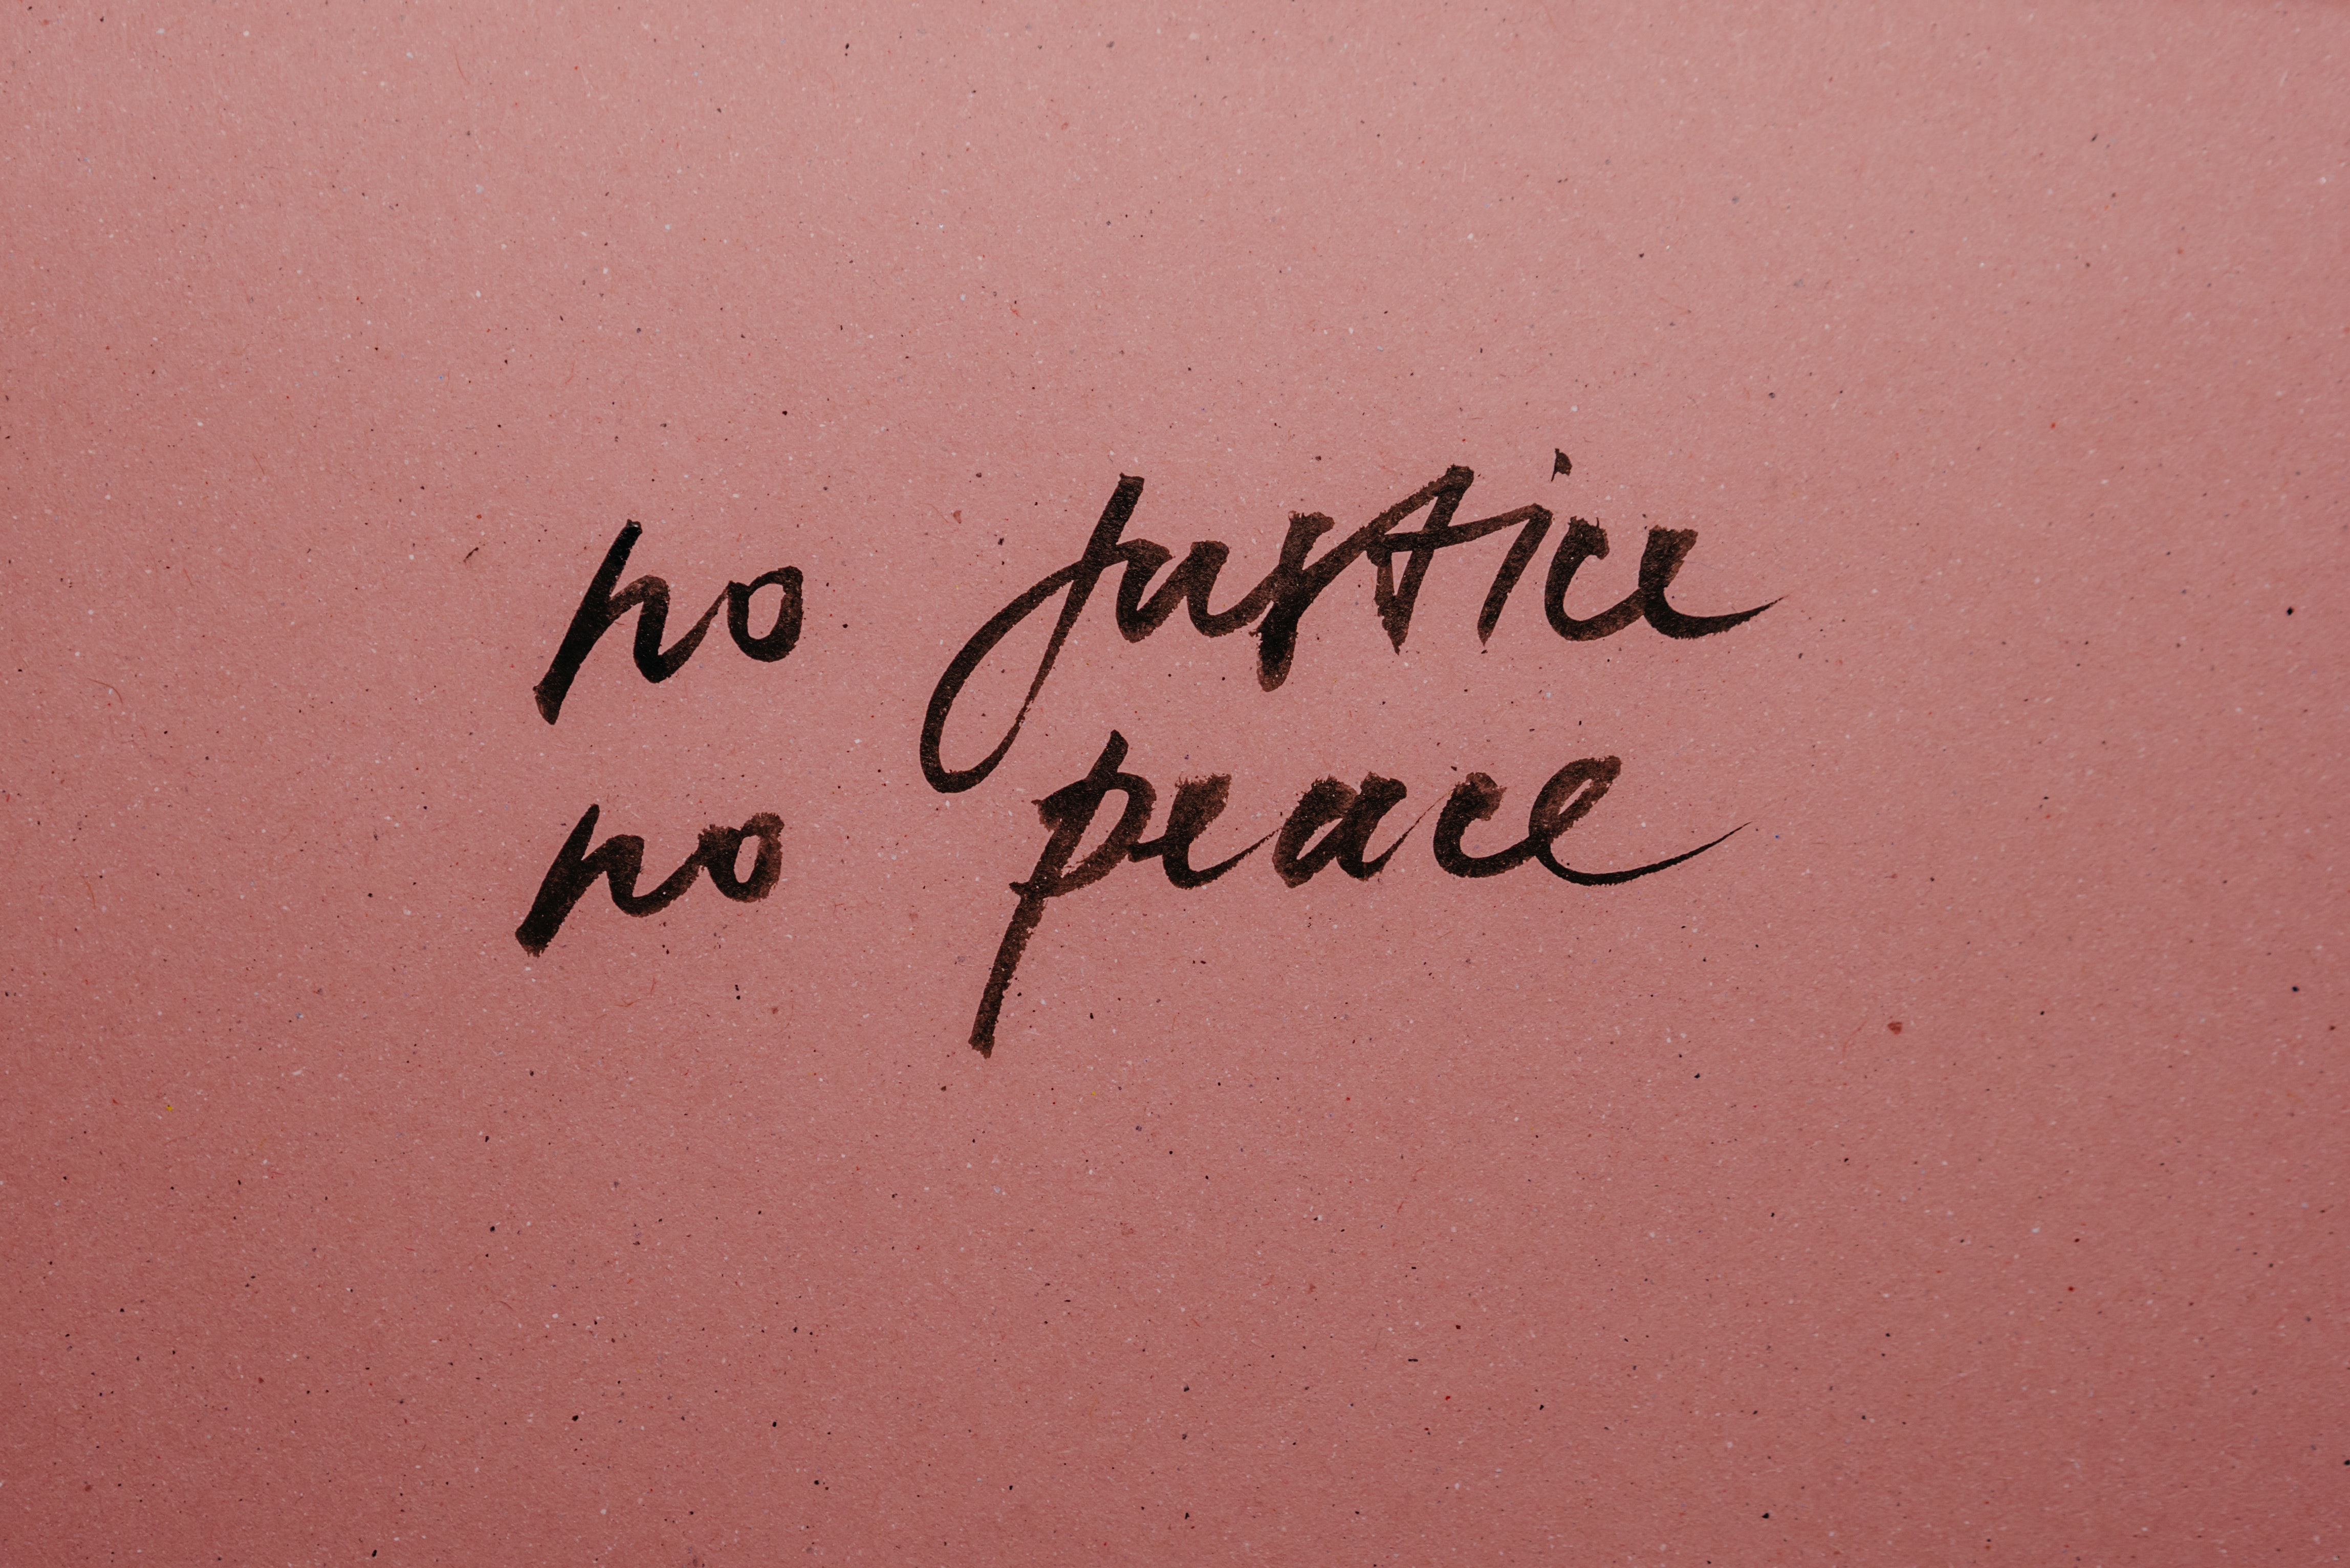 no justice
no peace